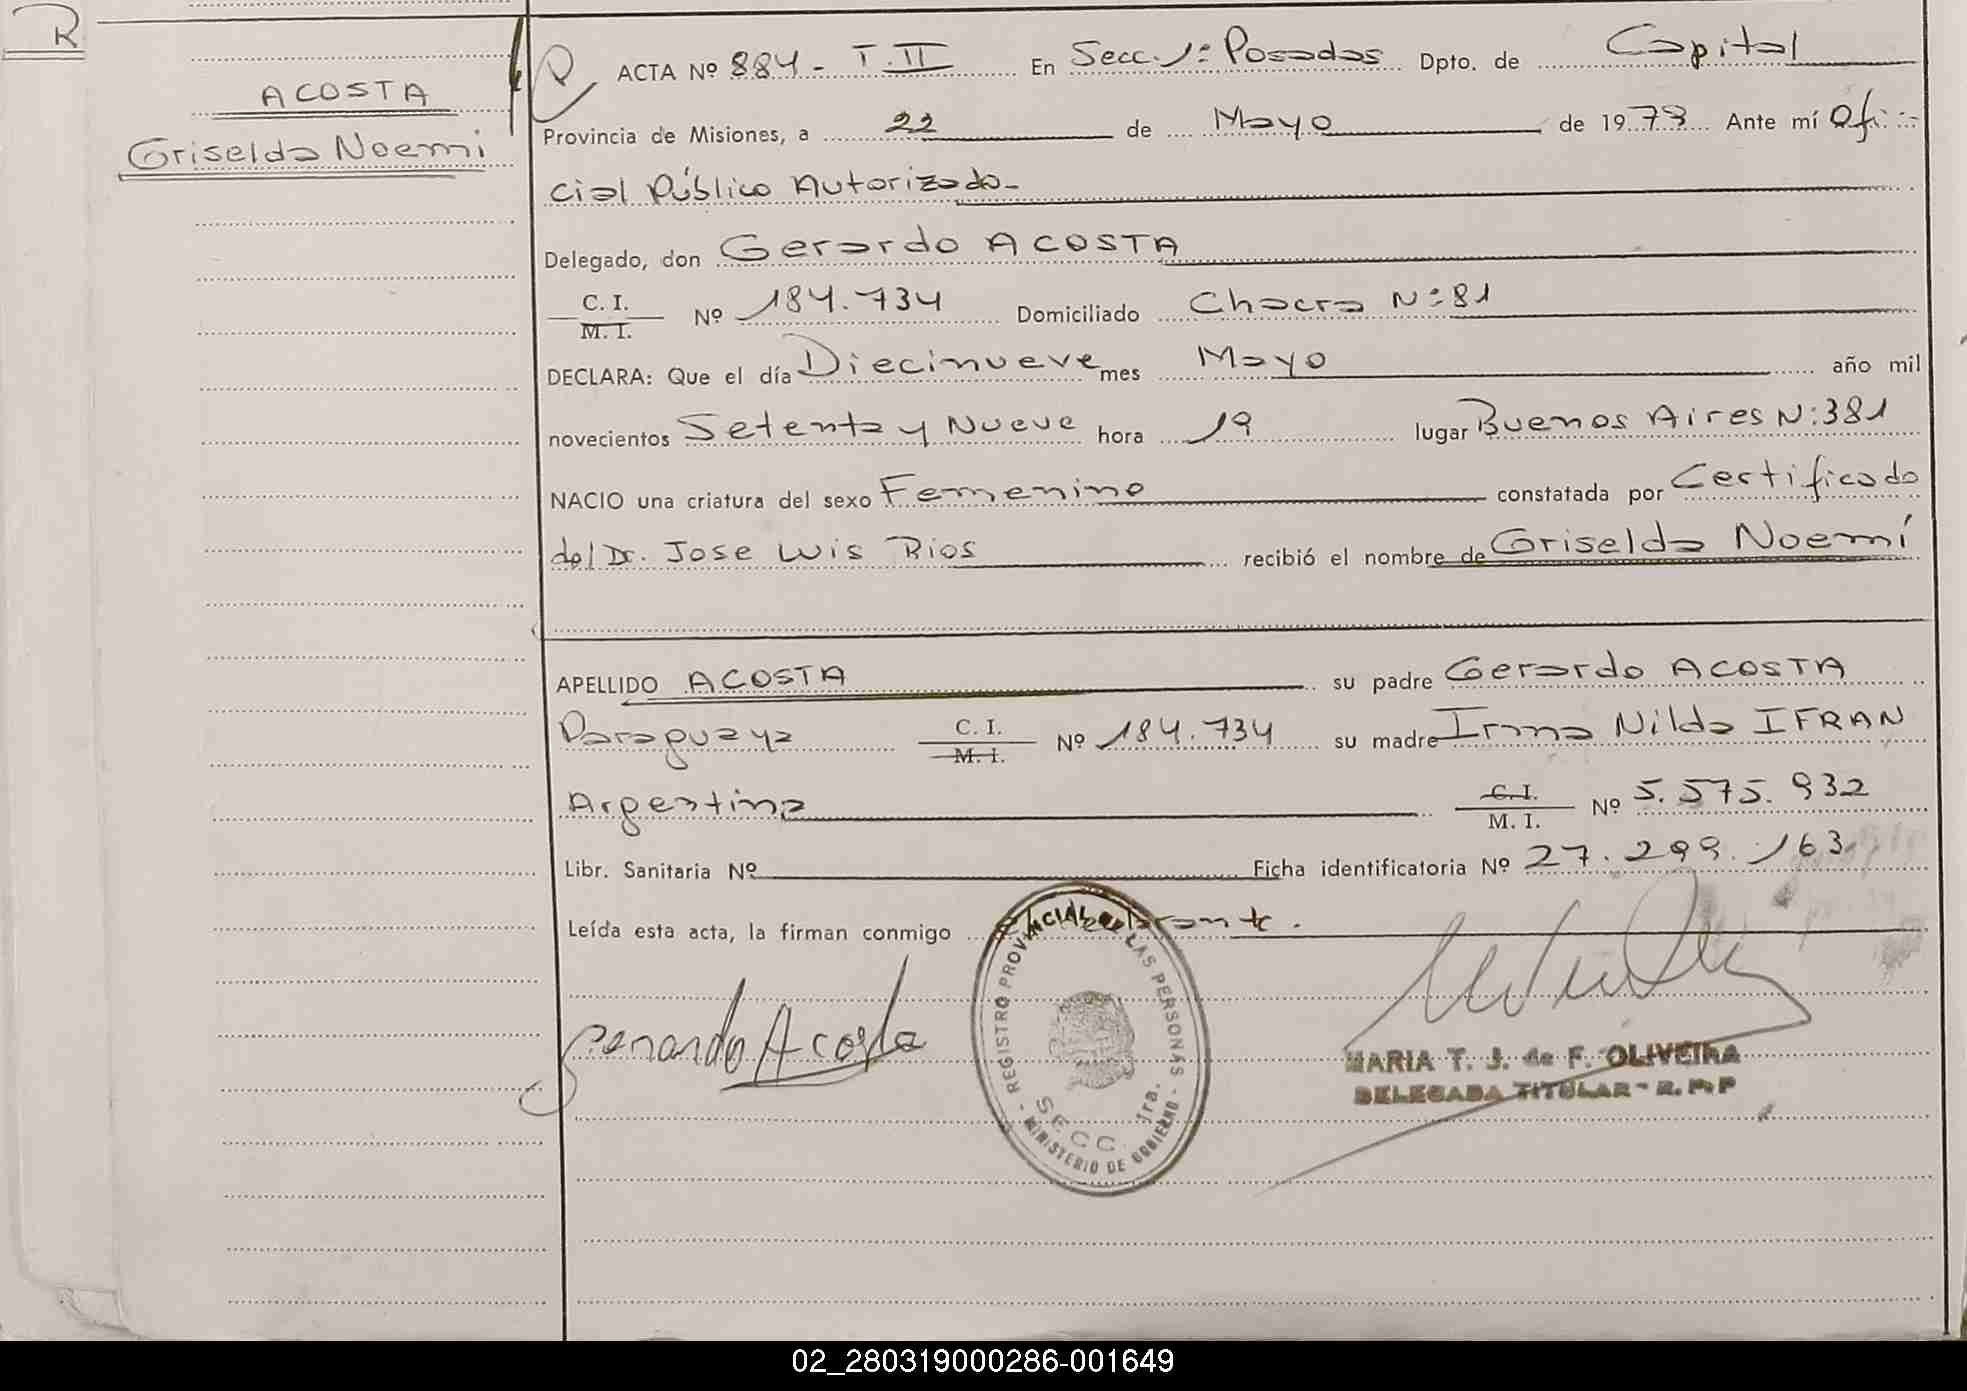 R
ACOSTA
Griselda Noemi
ACTA Nº 884 - T. II En Secc. 1: Posadas Dpto. de Capital
Provincia de Misiones, a 22 de Mayo de 1979 Ante mí Ofi-
cial Público Autorizado-
Delegado, don Gerardo ACOSTA
C. I.
M. I.
Nº 184.734 Domiciliado Chacra N: 81
DECLARA: Que el día Diecinueve mes Mayo año mil
novecientos Setenta y Nueve hora 19 lugar Buenos Aires N: 381
NACIO una criatura del sexo Femenino constatada por Certificado
del Dr. Jose Luis Rios recibió el nombre de Griselda Noemí
APELLIDO ACOSTA su padre Gerardo ACOSTA
Paraguaya C. I. M. I. Nº 184.734 su madre Irma Nilda IFRAN
Argentina C. I. M. I. Nº 5.575.932
Libr. Sanitaria Nº Ficha identificatoria Nº 27.299.163
Leída esta acta, la firman conmigo el declarante.
Gerardo Acosta
REGISTRO PROVINCIAL DE LAS PERSONAS
SECC. 1ra.
MINISTERIO DE GOBIERNO
MARIA T. J. de F. OLIVEIRA
DELEGADA TITULAR - R. P. P
02_280319000286-001649